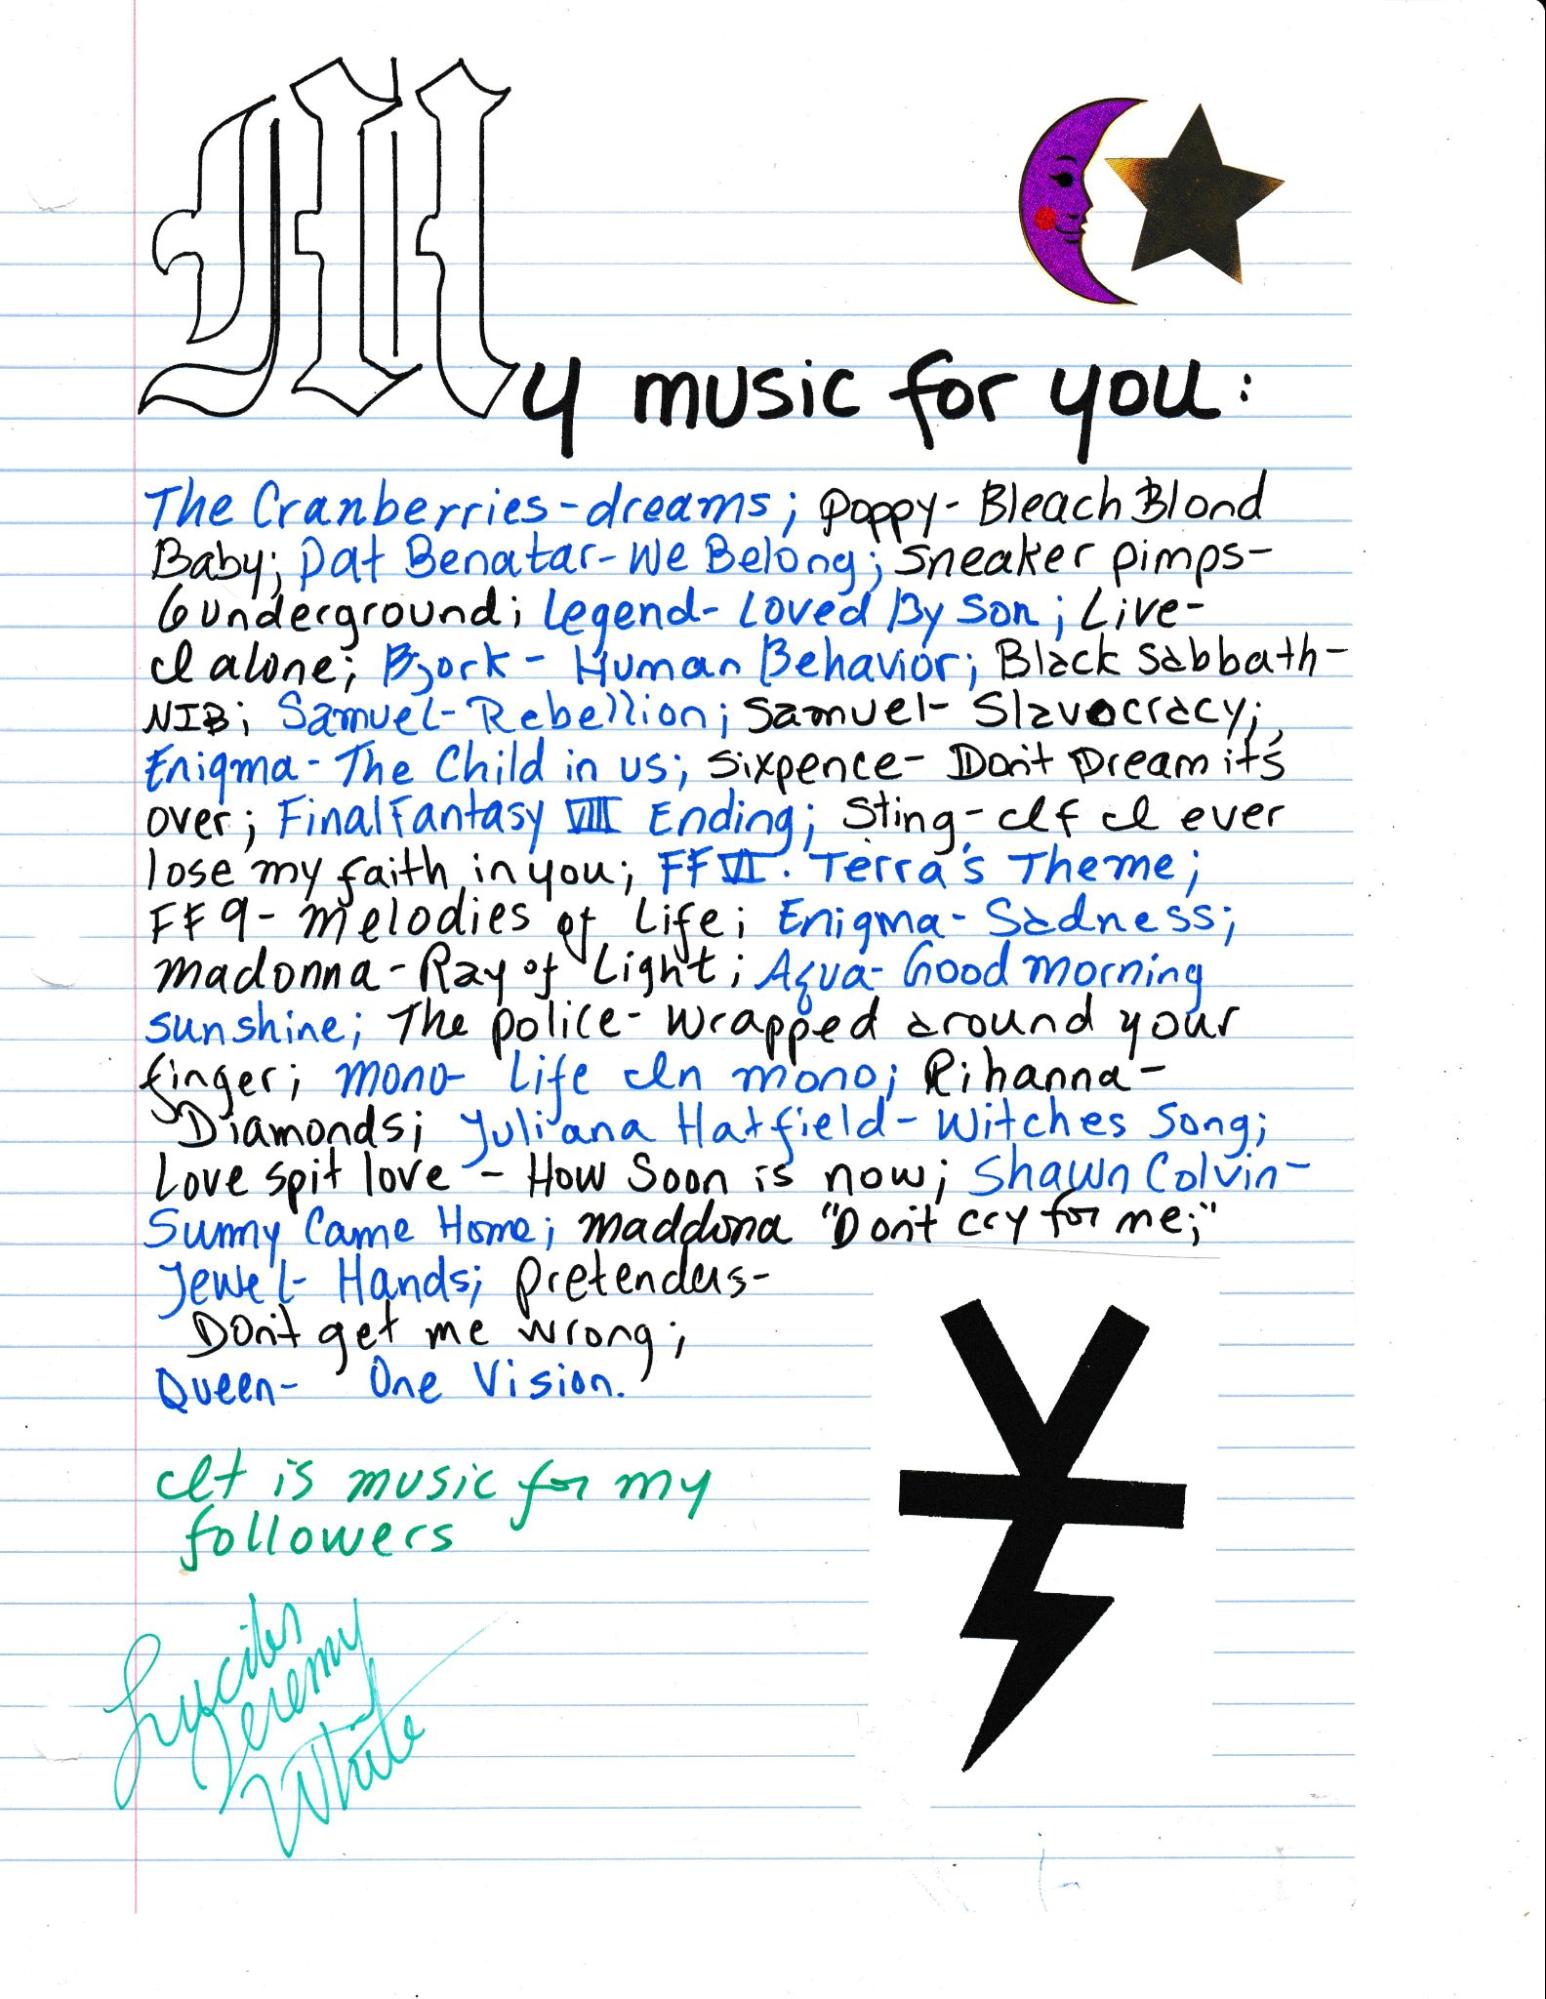 My music for you:
The Cranberries-dreams; Poppy- Bleach Blond
Baby; Pat Benatar-We Belong; Sneaker pimps-
6 underground; Legend- Loved By Son; Live-
I alone; Bjork - Human Behavior; Black Sabbath-
NIB; Samuel-Rebellion; Samuel- Slavocracy;
Enigma- The Child in us; Sixpence- Don't Dream it's
over; Final Fantasy VIII Ending; Sting-If I ever
lose my faith in you; FF VI. Terra's Theme;
FF 9- Melodies of Life; Enigma- Sadness;
Madonna-Ray of Light; Aqua- Good morning
sunshine; The police- Wrapped around your
finger; mono- Life In mono; Rihanna-
Diamonds; Juliana Hatfield- Witches Song;
Love spit love - How Soon is now; Shawn Colvin-
Sunny Came Home; Maddona "Don't cry for me;"
Jewel- Hands; Pretenders-
Don't get me wrong;
Queen- One Vision.
It is music for my
followers
Jeremy
White